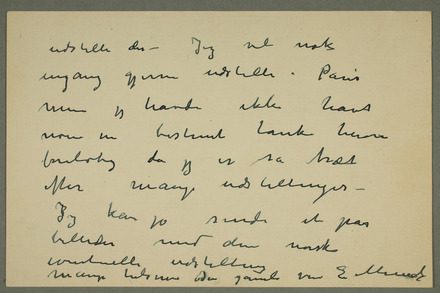 udstille der – Jeg vil nok
engang gjerne udstille i Paris
men jeg havde ikke havt
noen bestemt tanke herom
foreløbig da jeg er så træt
efter mange udstillinger –
Jeg kan jo sende et par
billeder med den norske
eventuelle udstilling
mange hilsener Din gamle ven E Munch